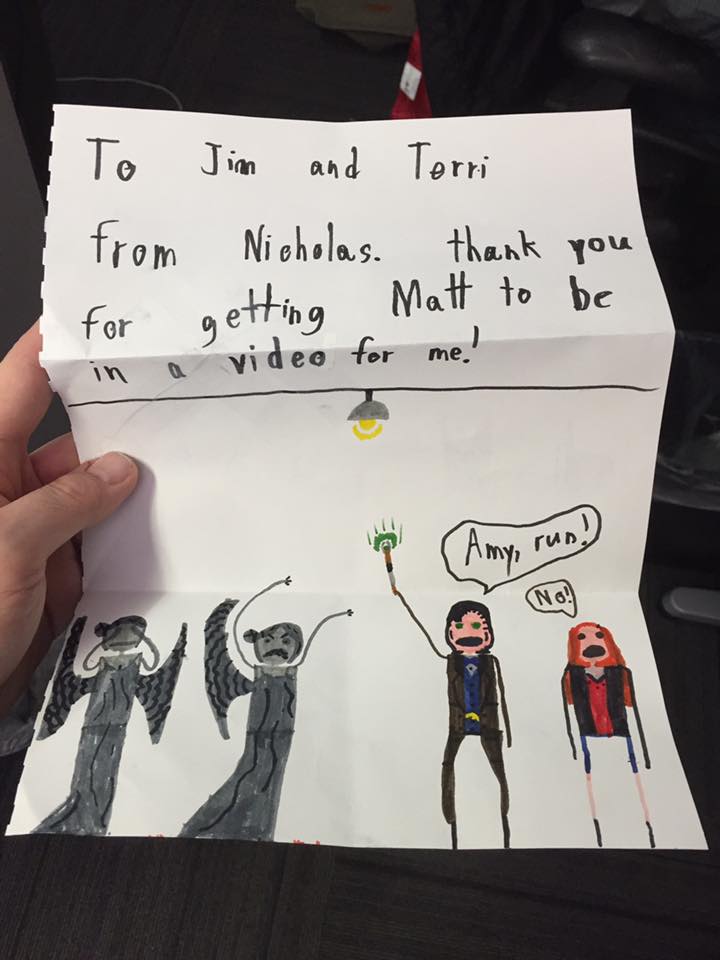 To Jim and Terri
from Nicholas. thank you
for getting Matt to be
in a video for me!
Amy, run!
No!